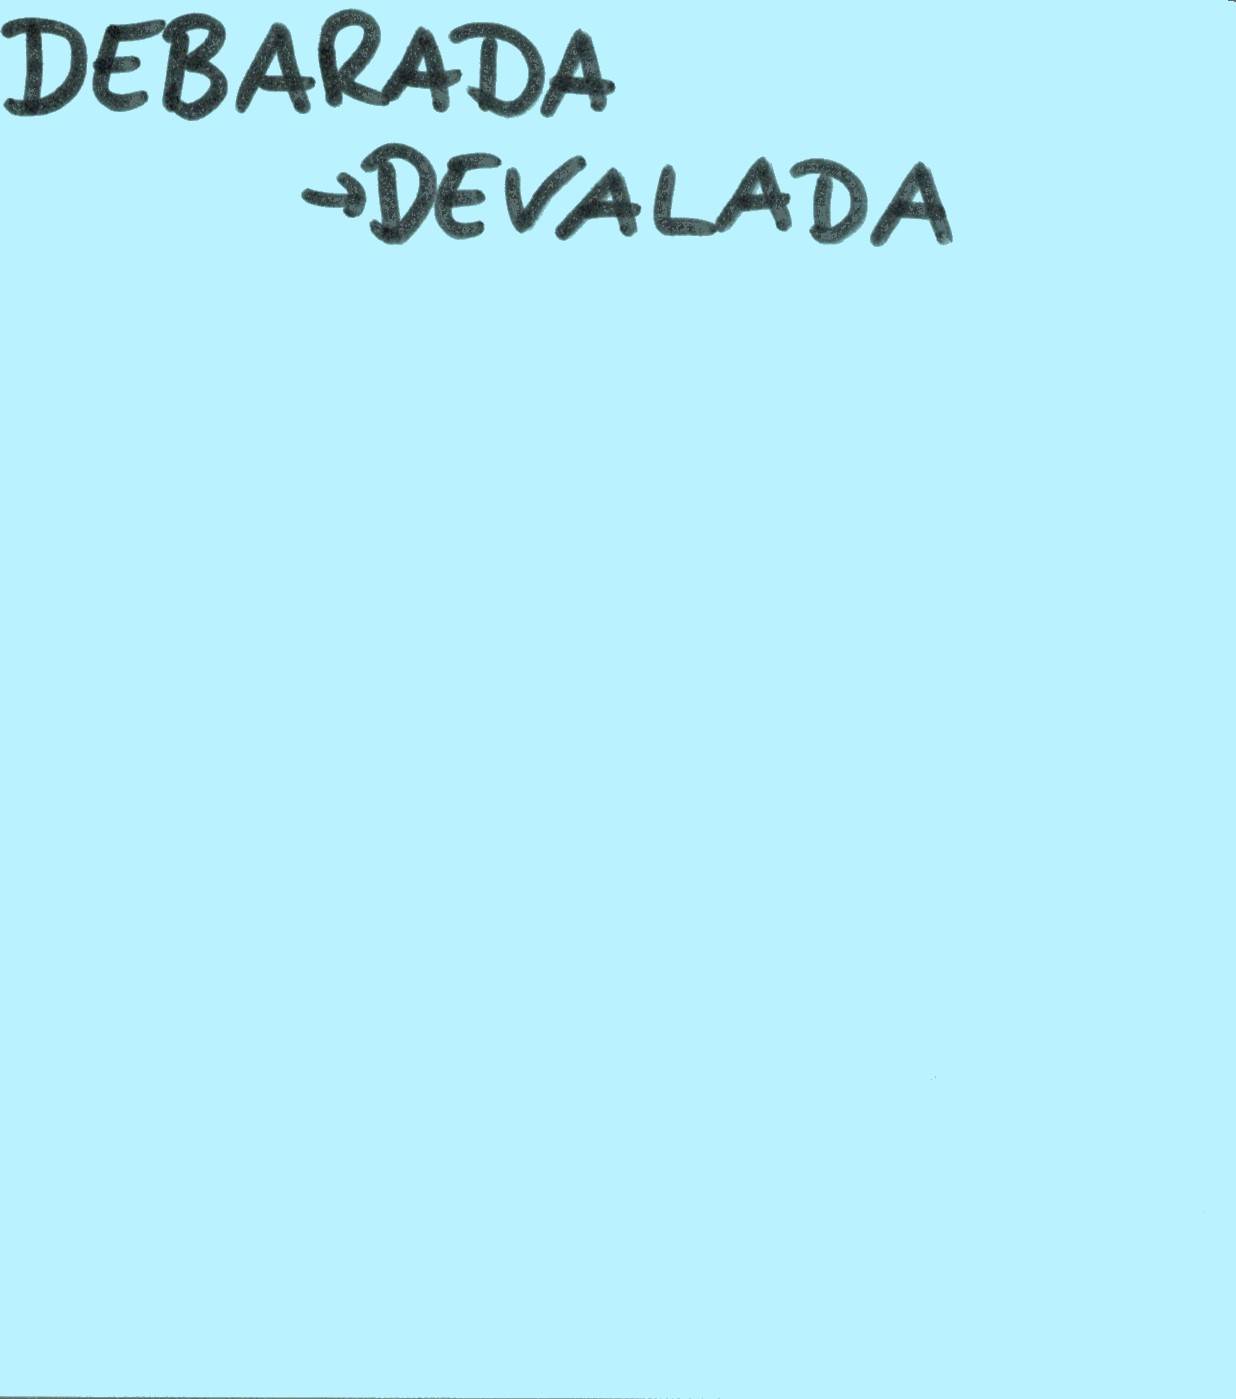 DEBARADA
→DEVALADA